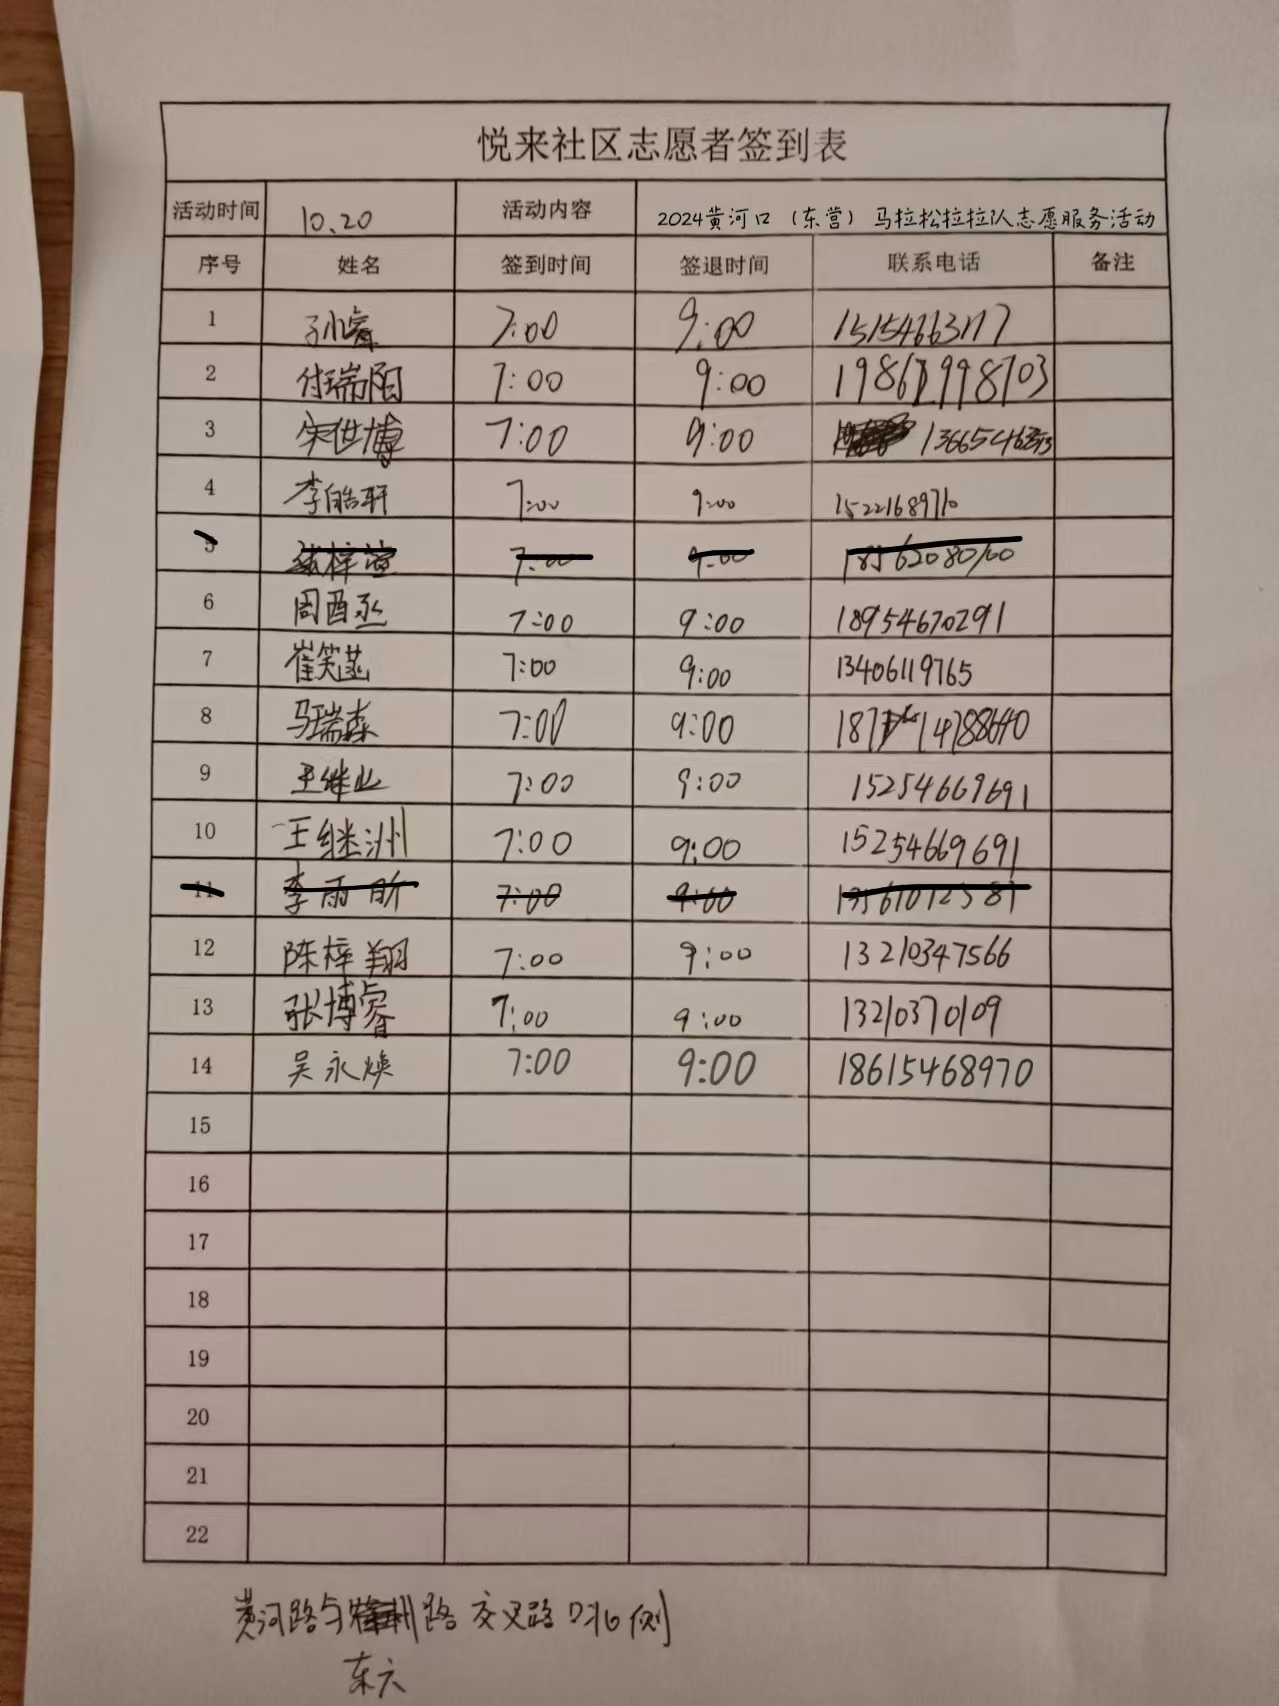 悦来社区志愿者签到表
活动时间 10.20 活动内容 2024黄河口（东营）马拉松拉拉队志愿服务活动
序号 姓名 签到时间 签退时间 联系电话 备注
1 孙睿 7:00 9:00 15154663177
2 付瑞阳 7:00 9:00 19861998703
3 宋世博 7:00 9:00
4 李皓轩 7:00 9:00 15221689710
5 7:00 9:00
6 周酉丞 7:00 9:00 18954670291
7 崔笑菡 7:00 9:00 13406119765
8 马瑞森 7:00 9:00
9 王继业 7:00 9:00 15254669691
10 王继洲 7:00 9:00 15254669691
11 李雨昕 7:00 9:00
12 陈梓翔 7:00 9:00 13210347566
13 张博睿 7:00 9:00 13210370109
14 吴永焕 7:00 9:00 18615468970
15
16
17
18
19
20
21
22
黄河路与 路交叉路口北侧
东六